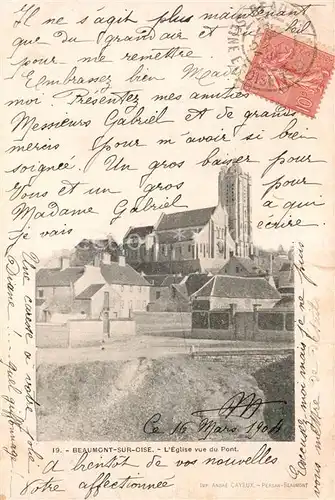 Il ne s'agit plus maintenant
que du grand air et du
pour me remettre
Embrassez bien
moi. Présentez mes amitiés
Messieurs Gabriel et de grands
mercis pour m'avoir si bien
soignée. Un gros baiser pour
Vous et un gros pour
Madame Gabriel à qui
je vais écrire.
Une caresse à votre
Diane ! quel griffonnage
Excusez moi mais je ne
Ce 16 Mars 1904
19. - BEAUMONT-SUR-OISE. - L'Église vue du Pont.
à bientôt de vos nouvelles
Votre affectionnée
IMP. ANDRÉ CAYEUX. - PERSAN-BEAUMONT